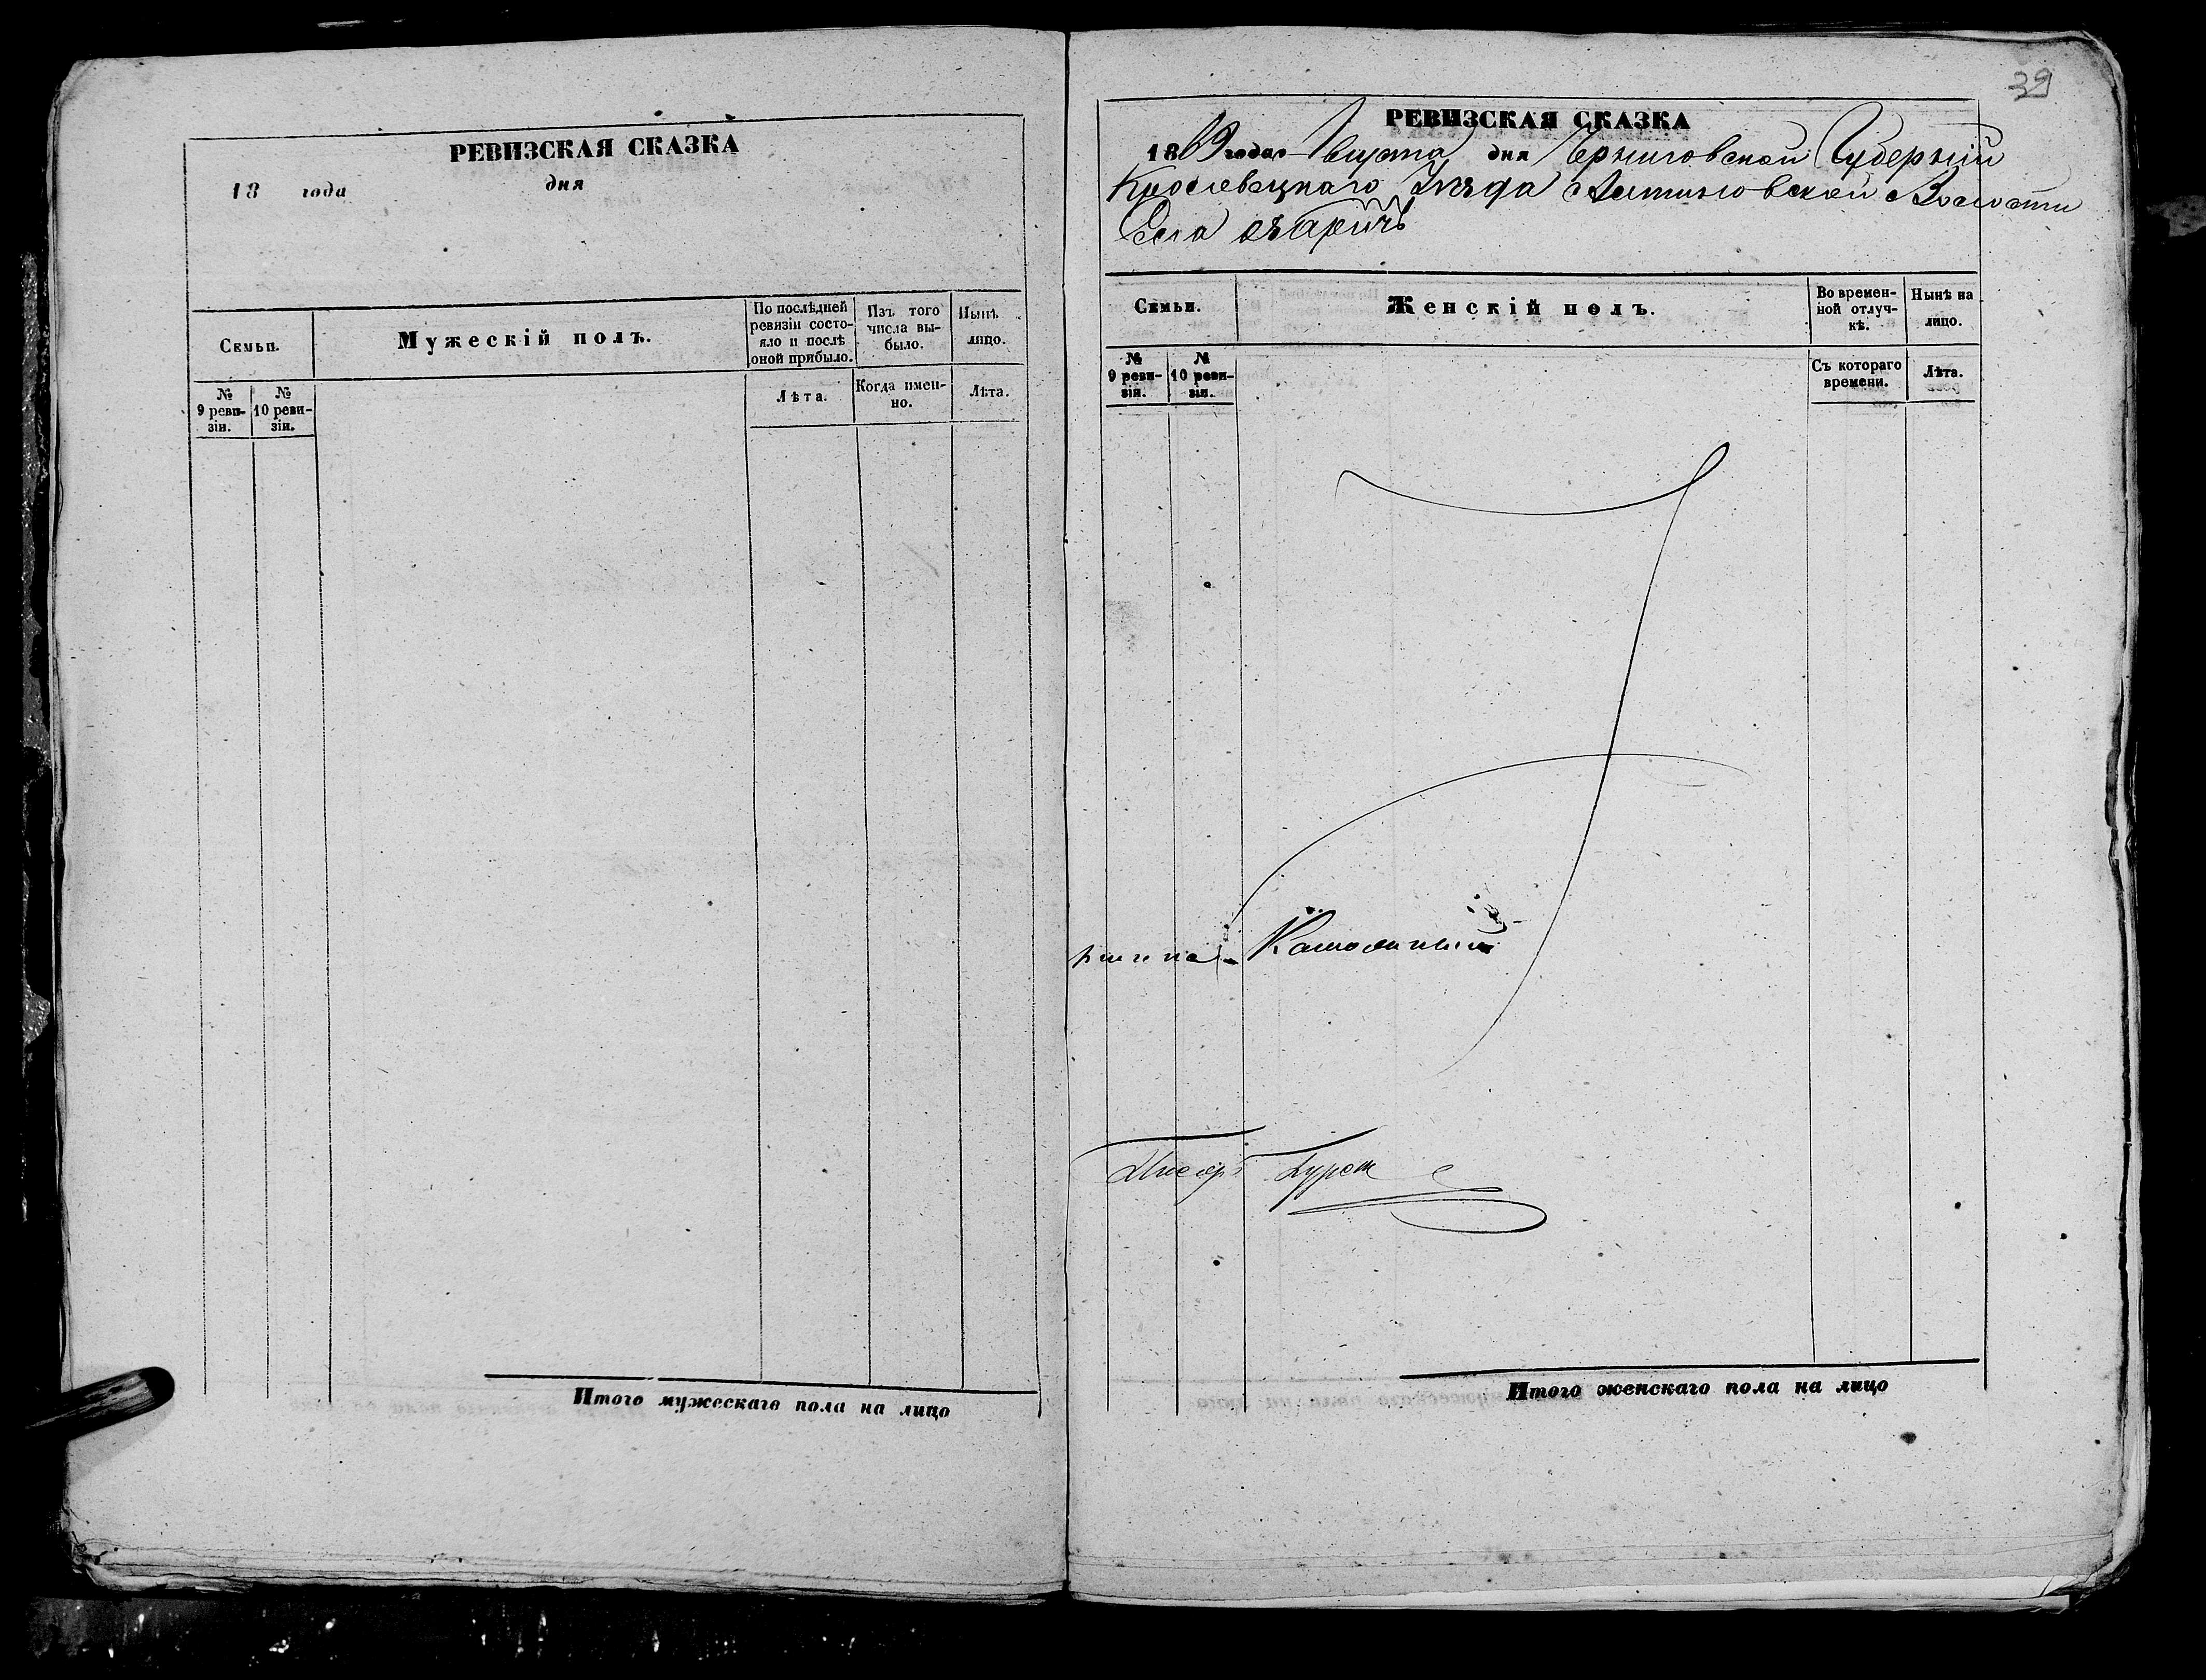 РЕВИЗСКАЯ СКАЗКА
18 года дня
Семьи.
Мужескій полъ.
По послѣдней ревизіи состо-
яло и послѣ
оной прибыло.
Изъ того
числа вы-
было.
Нынѣ
лицо.
№
9 реви-
зіи.
№
10 реви-
зіи.
Лѣта.
Когда имен-
но.
Лѣта.
Итого мужескаго пола на лицо
39
РЕВИЗСКАЯ СКАЗКА
1869 года Марта дня Черниговской Губерніи
Кролевецкаго Уѣзда Волости
Села
Семьи.
Женскій полъ.
Во времен-
ной отлуч-
кѣ.
Нынѣ на
лицо.
№
9 реви-
зіи.
№
10 реви-
зіи.
Съ котораго
времени.
Лѣта.
Писарь
Итого женскаго пола на лицо